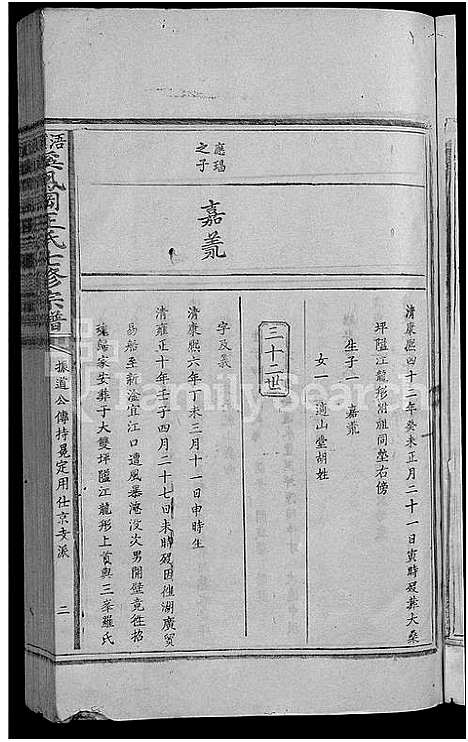 應瑞
之子
嘉羛
清康熙四十二年癸未正月二十一日寅時歿葬大桑
坪隘江龍形附祖同塋右傍
生子一 嘉羛
女一 適山堂胡姓
三十二世
字及義
清康熙六年丁未三月十一日申時生
清雍正十年壬子四月二十七日未時歿因往湖廣貿
易船至新淦宜江口遭風暴淹沒次男開璧竟徃招
魂歸家安葬于大雙坪隘江龍形上首與三峯羅氏
鳳岡王氏七修宗譜
振道公傳持晃定用仕京女派
二
FamilySearch